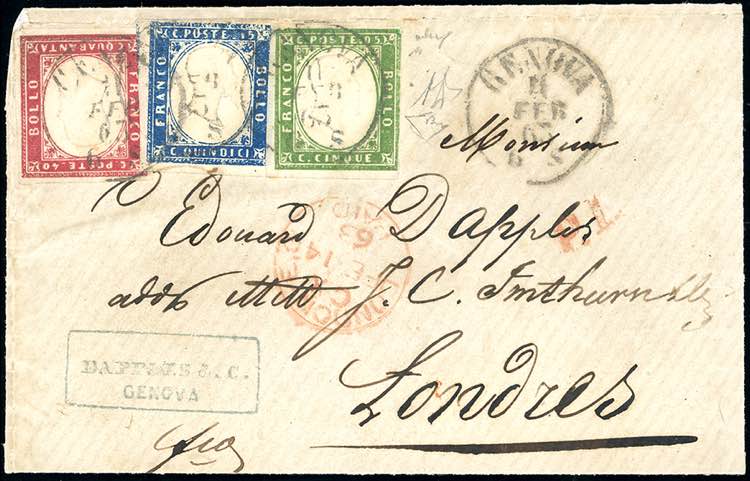 C. POSTE 40
FRANCO
BOLLO
C. QUARANTA
C. POSTE 15
FRANCO
BOLLO
C. QUINDICI
C. POSTE 05
FRANCO
BOLLO
C. CINQUE
GENOVA
11
FEB
63
Monsieur
Edouard Dapples
J. C. Imthurn
Londres
LONDON
63
14
P.D.
DAPPLES & C.
GENOVA